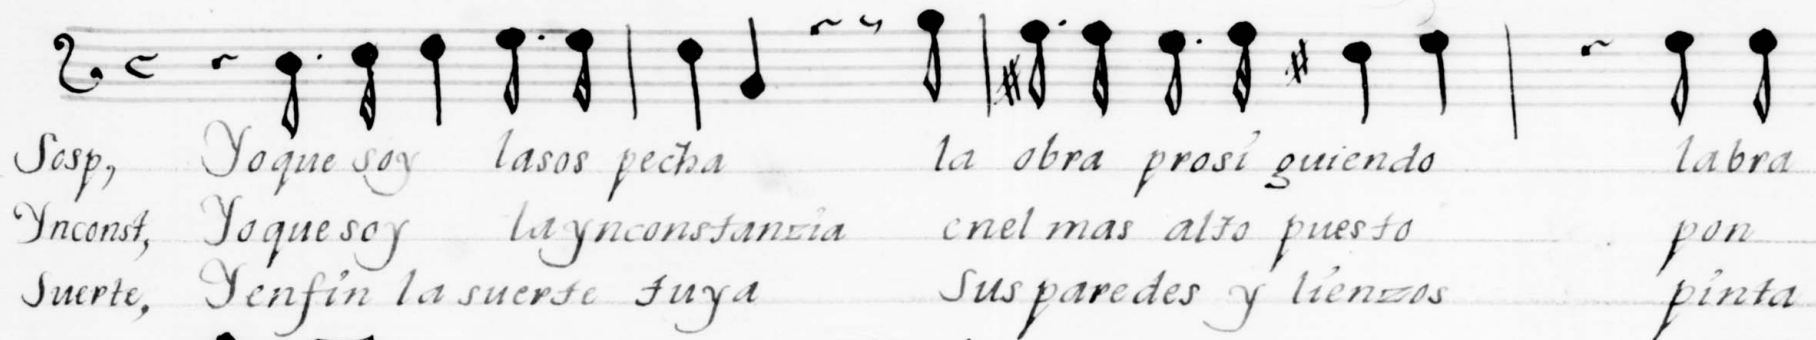 Sosp, Yo que soy la sos pecha la obra prosi guiendo labra
Ynconst, Yo que soy la ynconstanzia enel mas alto puesto pon
Suerte, Y enfin la suerte tuya Sus paredes y lienzos pinta